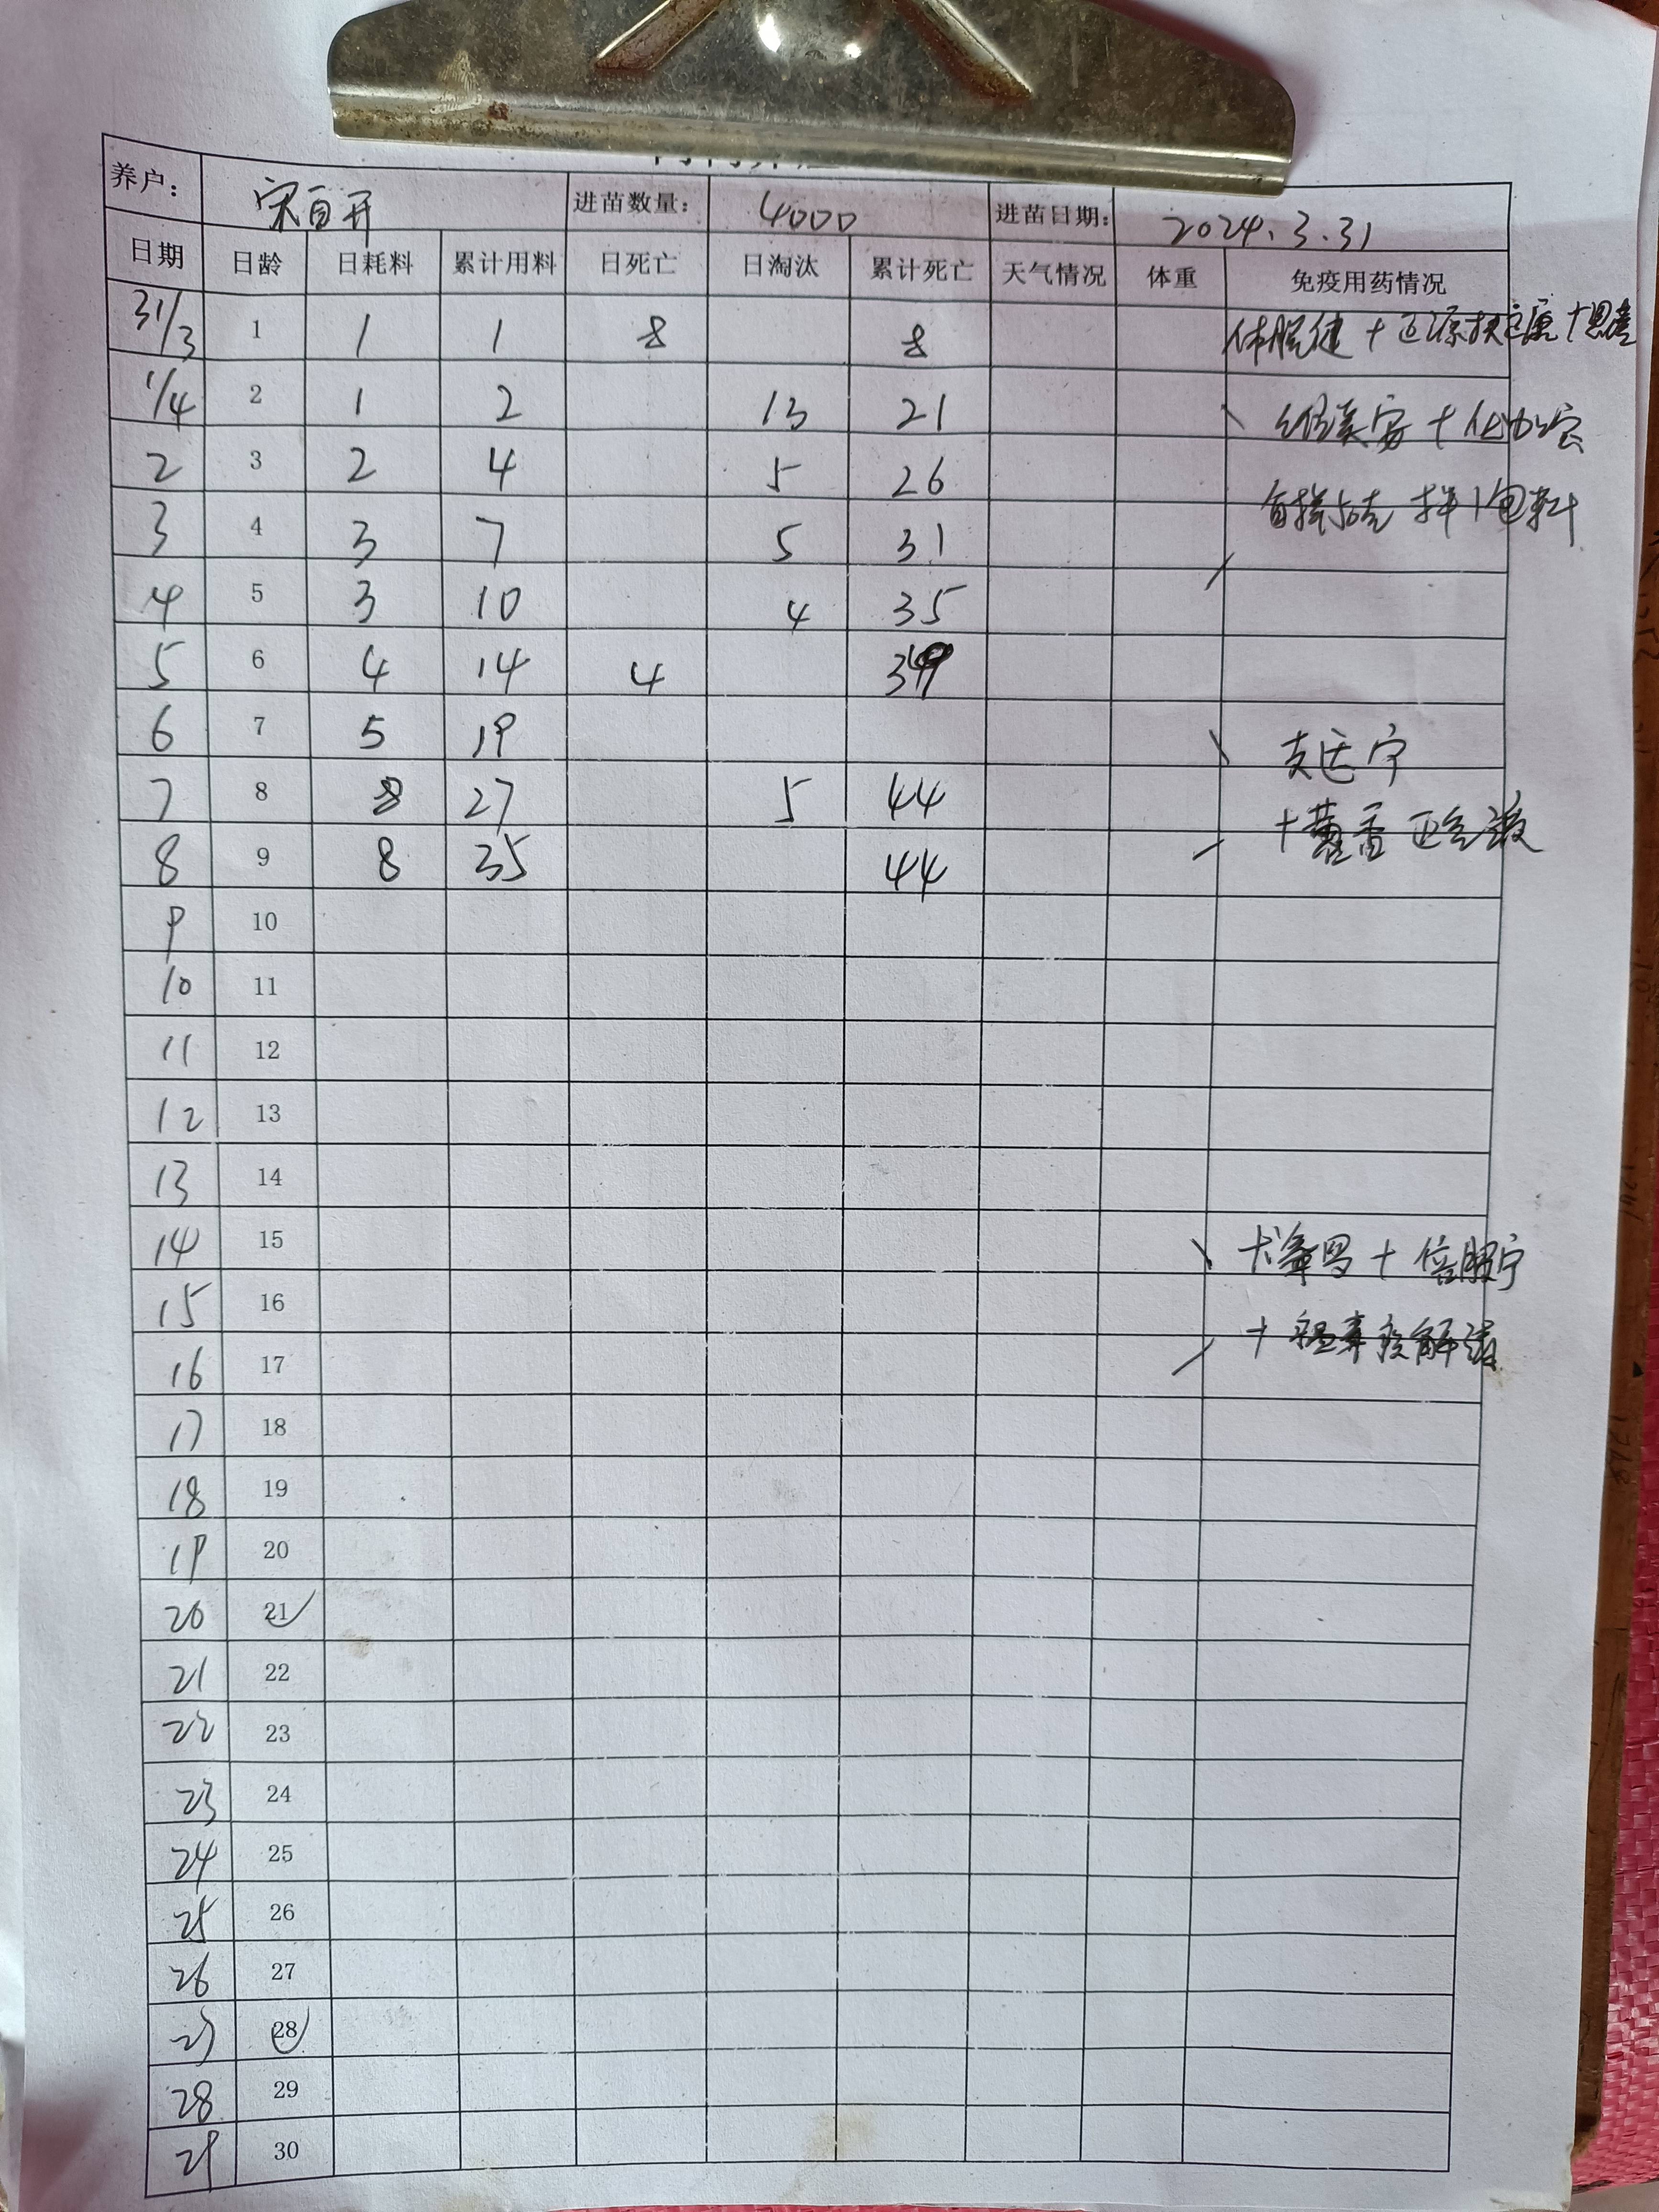 养户： 宋百开 进苗数量： 4000 进苗日期： 2024.3.31
日期 日龄 日耗料 累计用料 日死亡 日淘汰 累计死亡 天气情况 体重 免疫用药情况
31/3 1 1 1 8 8
1/4 2 1 2 13 21
2 3 2 4 5 26
3 4 3 7 5 31
4 5 3 10 4 35
5 6 4 14 4 39
6 7 5 19 支
7 8 8 27 5 44 +藿香正气液
8 9 8 35 44
9 10
10 11
11 12
12 13
13 14
14 15
15 16
16 17
17 18
18 19
19 20
20 21
21 22
22 23
23 24
24 25
25 26
26 27
27 28
28 29
29 30